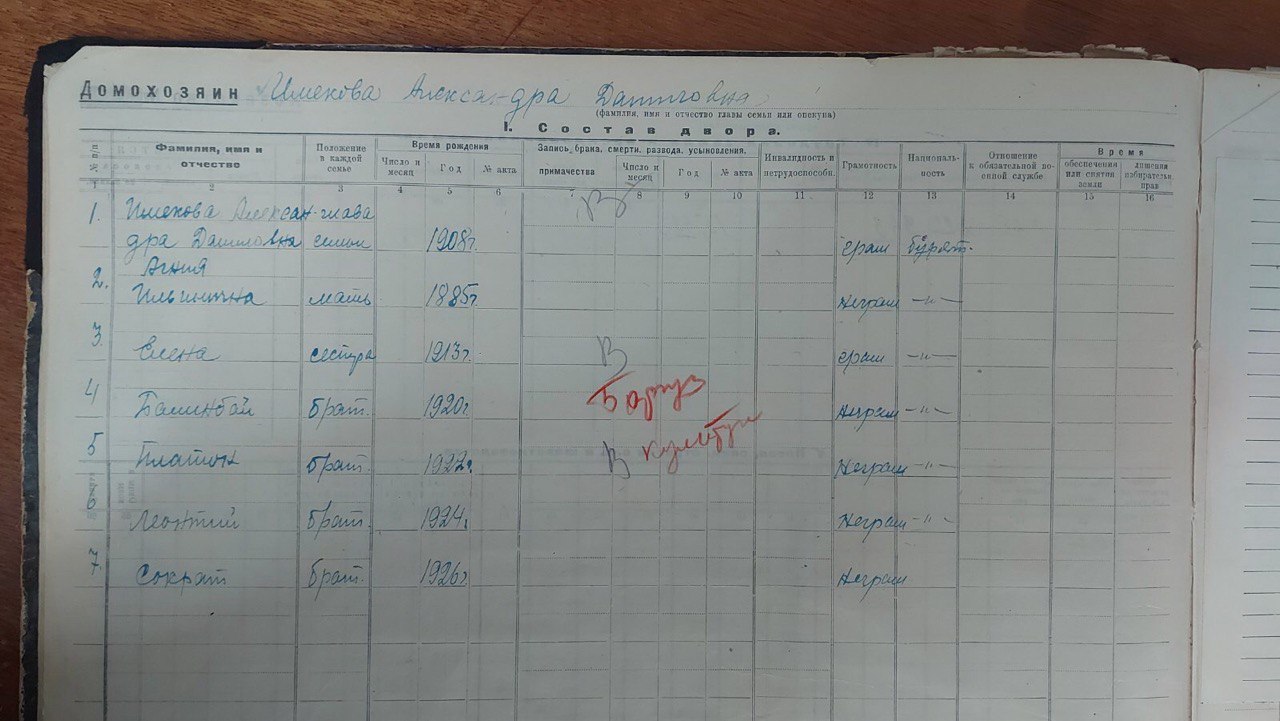 Домохозяин Имекова Александра Даниловна
(фамилия, имя и отчество главы семьи или опекуна)
I. Состав двора.
№ п/п Фамилия, имя и отчество Положение в каждой семье Время рождения Число и месяц Год № акта Запись, брака, смерти, развода, усыновления, примачества Число и месяц Год № акта Инвалидность и нетрудосп. Грамотность Националь-ность Отношение к обязательной во-енной службе Время обеспечения или снятия земли лишения избирательн. прав
1 2 3 4 5 6 7 8 9 10 11 12 13 14 15 16
1. Имекова Алексан- глава
дра Даниловна семьи 1908г. грам бурят.
2. Агния
Ильинична мать 1885г неграм —"—
3. Елена сестра 1913г. В грам —"—
4 брат. 1920г. неграм —"—
5 Платон брат. 1922г. В неграм —"—
6 Леонтий брат. 1924г. неграм —"—
7. Сократ брат. 1926г. неграм